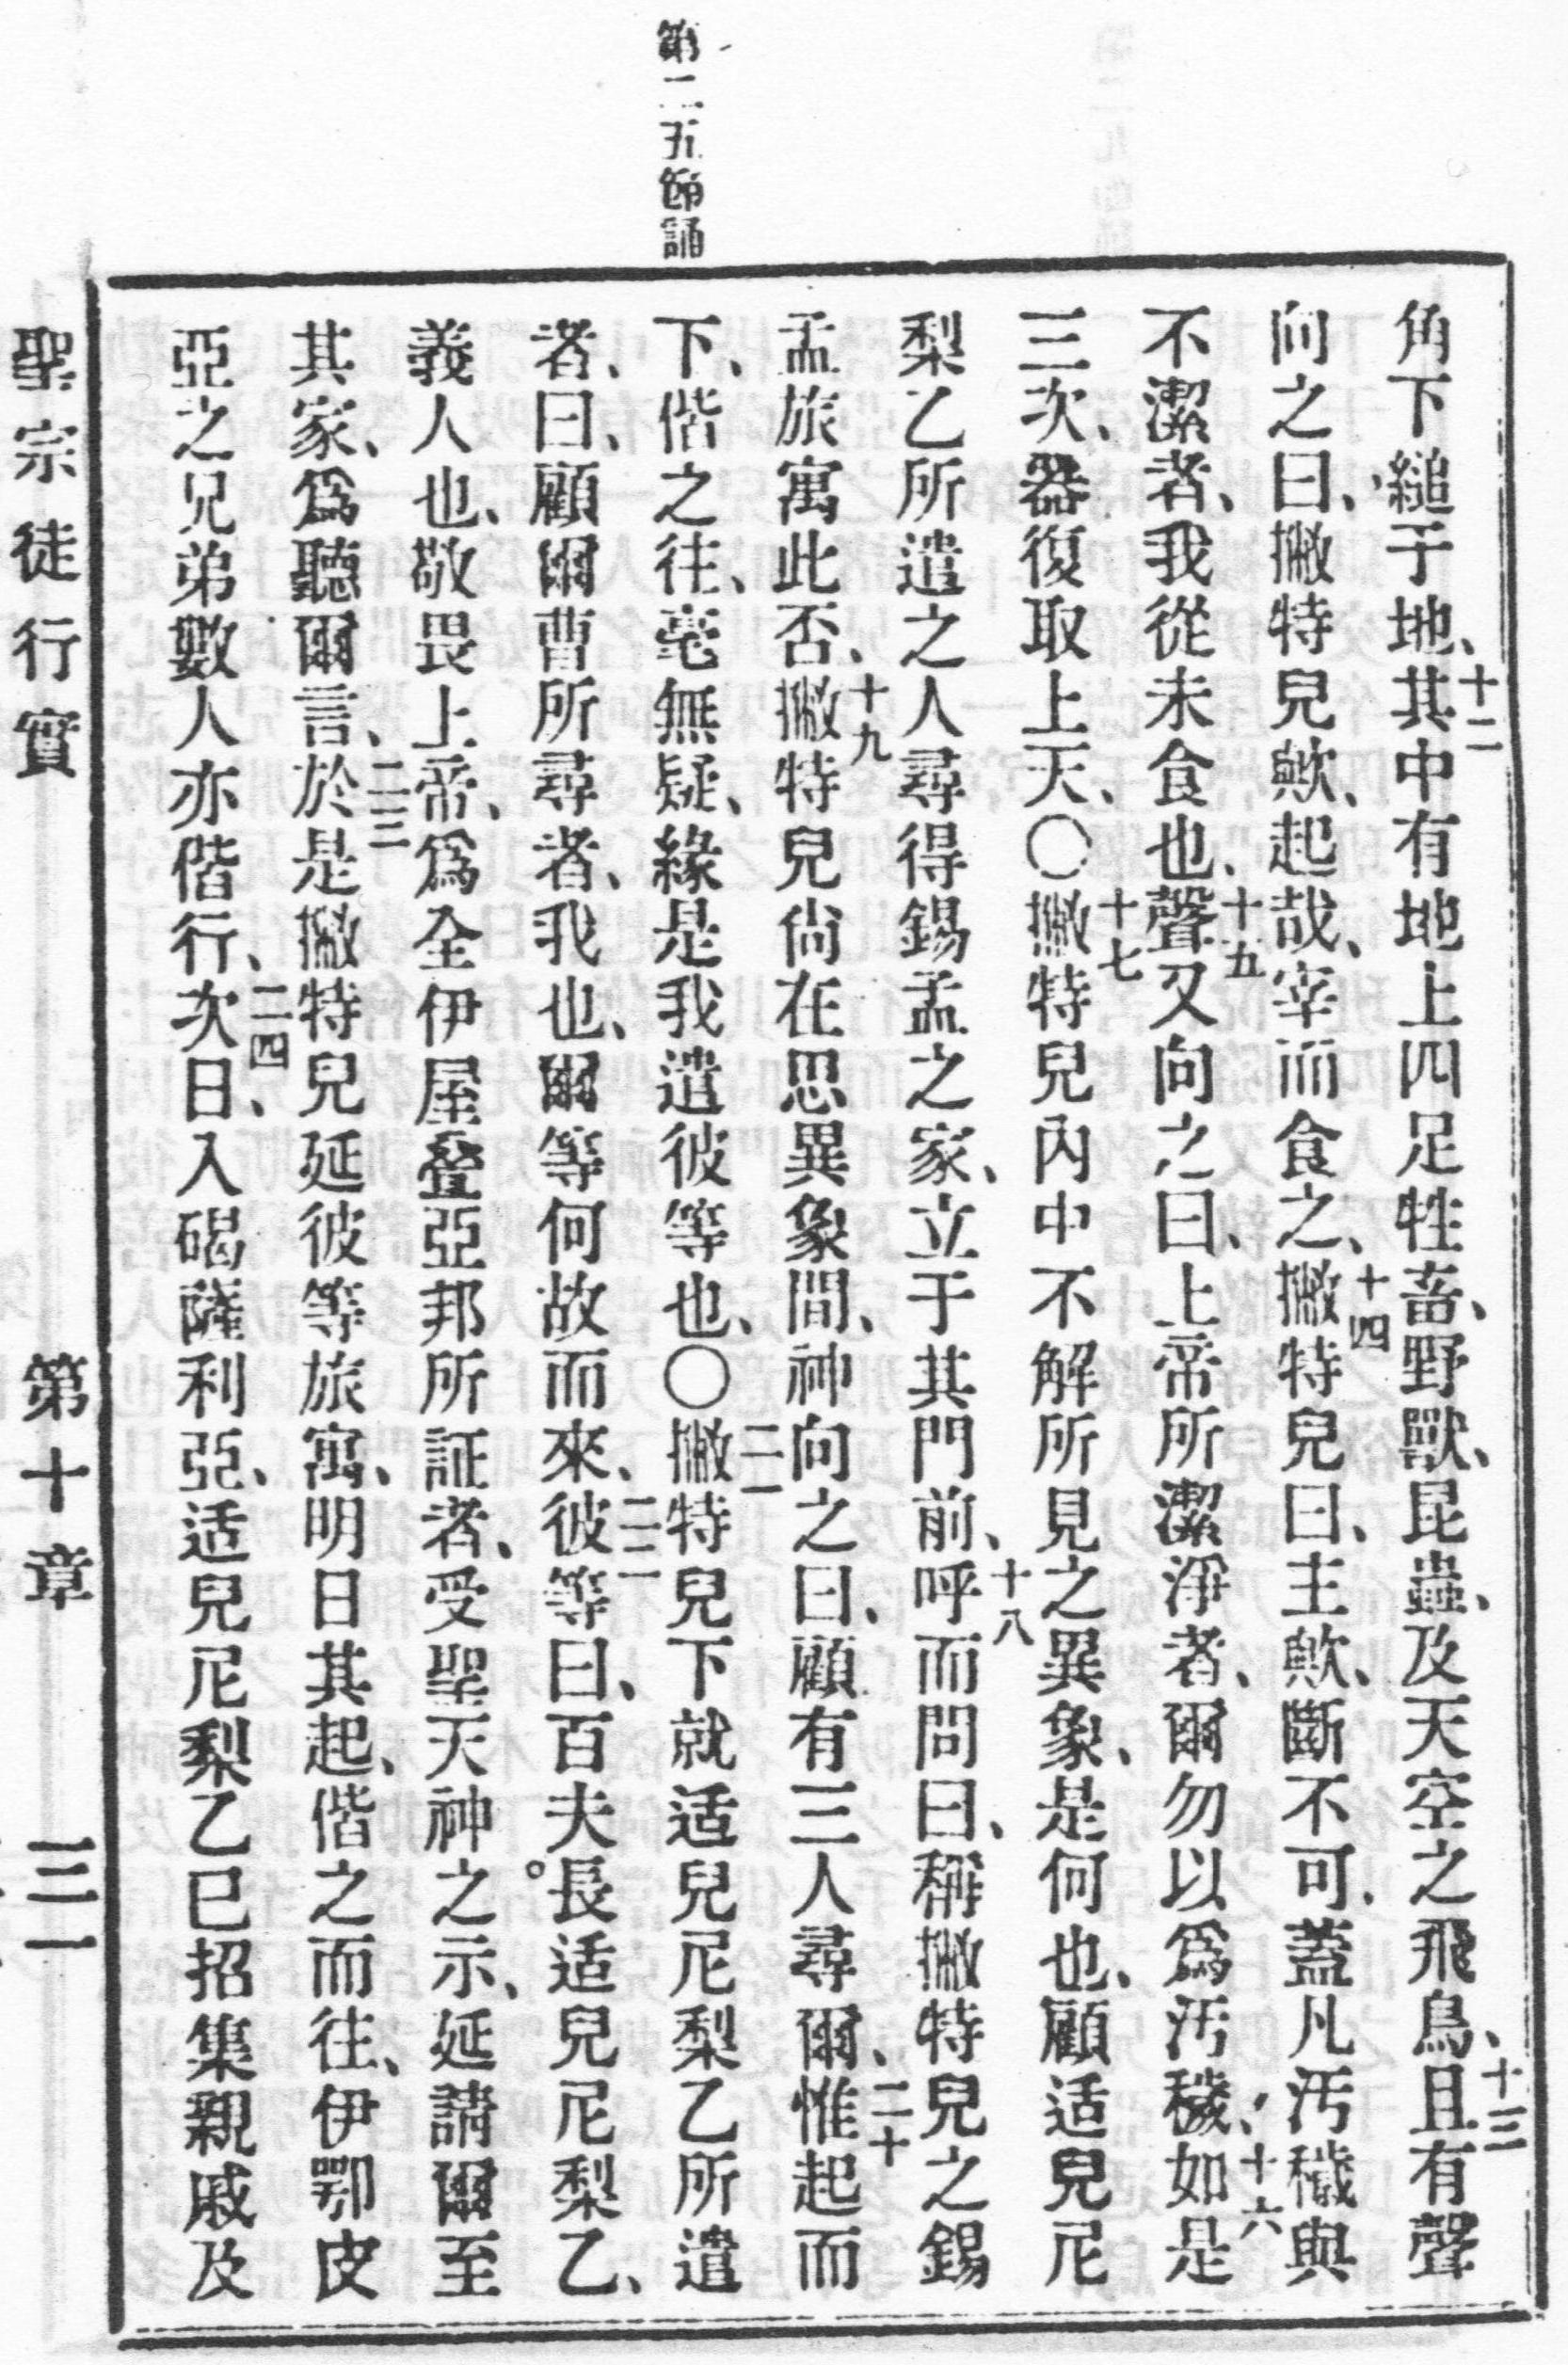 第二五節誦
角下縋于地、十二其中有地上四足牲畜、野獸、昆蟲、及天空之飛鳥、十三且有聲
向之曰、撇特兒歟、起哉、宰而食之、十四撇特兒曰、主歟、斷不可、蓋凡汚穢與
不潔者、我從未食也、十五聲又向之曰、上帝所潔淨者、爾勿以爲汚穢、十六如是
三次、器復取上天、〇十七撇特兒內中不解所見之異象、是何也、顧适兒尼
梨乙所遣之人尋得錫孟之家、立于其門前、十八呼而問曰、稱撇特兒之錫
孟旅寓此否、十九撇特兒尙在思異象間、神向之曰、顧有三人尋爾、二十惟起而
下、偕之往、毫無疑、緣是我遣彼等也、〇二一撇特兒下就适兒尼梨乙所遣
者、曰、顧爾曹所尋者、我也、爾等何故而來、二二彼等曰、百夫長适兒尼梨乙、
義人也、敬畏上帝、爲全伊屋叠亞邦所証者、受聖天神之示、延請爾至
其家、爲聽爾言、二三於是撇特兒延彼等旅寓、明日其起、偕之而往、伊鄂皮
亞之兄弟數人亦偕行、二四次日、入碣薩利亞、适兒尼梨乙已招集親戚及
聖宗徒行實 第十章 三一